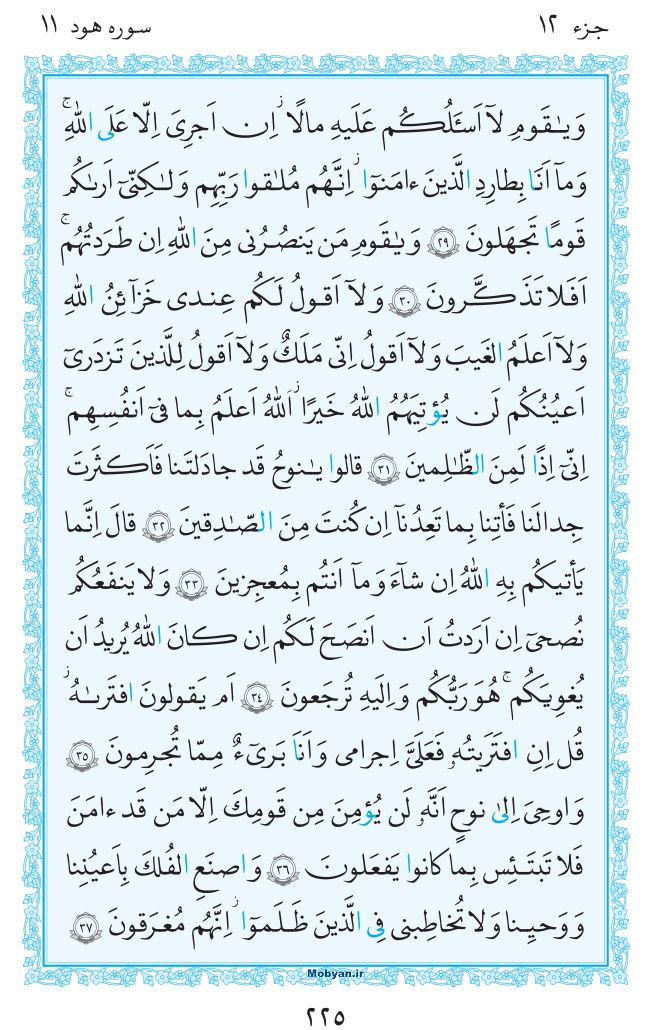 جزء ١٢
سوره هود ١١
وَيٰقَومِ لآ اَسـَٔلُكُم عَلَيهِ مالًا ۖ اِن اَجرِىَ اِلّا عَلَى اللهِ ۚ
وَمآ اَنَا بِطارِدِ الَّذينَ ءامَنوا ۚ اِنَّهُم مُلٰقوا رَبِّهِم وَلٰكِنّىٓ اَرىٰكُم
قَومًا تَجهَلونَ ﴿٢٩﴾ وَيٰقَومِ مَن يَنصُرُنى مِنَ اللهِ اِن طَرَدتُهُم ۚ
اَفَلا تَذَكَّرونَ ﴿٣٠﴾ وَلآ اَقولُ لَكُم عِندى خَزآئِنُ اللهِ
وَلآ اَعلَمُ الغَيبَ وَلآ اَقولُ اِنّى مَلَكٌ وَلآ اَقولُ لِلَّذينَ تَزدَرىٓ
اَعيُنُكُم لَن يُؤتِيَهُمُ اللهُ خَيرًا ۖ اَللهُ اَعلَمُ بِما فىٓ اَنفُسِهِم ۚ
اِنّىٓ اِذًا لَمِنَ الظّٰلِمينَ ﴿٣١﴾ قالوا يٰنوحُ قَد جادَلتَنا فَاَكثَرتَ
جِدالَنا فَأتِنا بِما تَعِدُنآ اِن كُنتَ مِنَ الصّٰدِقينَ ﴿٣٢﴾ قالَ اِنَّما
يَأتيكُم بِهِ اللهُ اِن شآءَ وَمآ اَنتُم بِمُعجِزينَ ﴿٣٣﴾ وَلا يَنفَعُكُم
نُصحىٓ اِن اَرَدتُ اَن اَنصَحَ لَكُم اِن كانَ اللهُ يُريدُ اَن
يُغوِيَكُم ۚ هُوَ رَبُّكُم وَاِلَيهِ تُرجَعونَ ﴿٣٤﴾ اَم يَقولونَ افتَرىٰهُ ۖ
قُل اِنِ افتَرَيتُهُۥ فَعَلَىَّ اِجرامى وَاَنَا بَرىٓءٌ مِمّا تُجرِمونَ ﴿٣٥﴾
وَاوحِىَ اِلىٰ نوحٍ اَنَّهُۥ لَن يُؤمِنَ مِن قَومِكَ اِلّا مَن قَد ءامَنَ
فَلا تَبتَئِس بِما كانوا يَفعَلونَ ﴿٣٦﴾ وَاصنَعِ الفُلكَ بِاَعيُنِنا
وَوَحيِنا وَلا تُخاطِبنى فِى الَّذينَ ظَلَموا ۚ اِنَّهُم مُغرَقونَ ﴿٣٧﴾
Mobyan.ir
٢٢٥